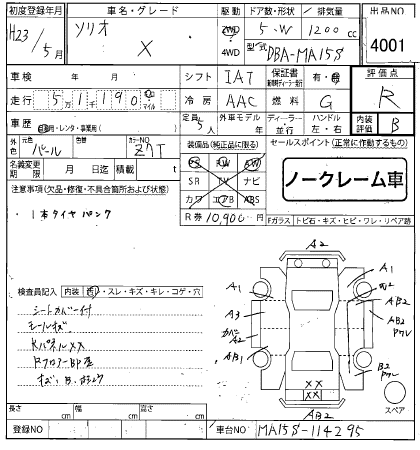 初度登録年月 車名・グレード 駆動 ドア数・形状 / 排気量 出品NO
H23 / 5月 ソリオ X 2WD 4WD 5・W 1200 cc
型式 DBA-MA15S 4001
車検 年 月 シフト IAT 保証書 有・無 評価点
走行 5 1 1 9 0 km マイル 冷房 AAC 燃料 G R
車歴 自家用・レンタ・事業用( ) 定員 5人 外車モデル 年 ディーラー・並行 ハンドル 左・右 内装 B
外色 元色 パール 色替 カラーNO Z7T 装備品(純正品に限る) セールスポイント(正常に作動するもの)
名義変更期限 月 日迄 積載 t PS PW AW
注意事項(欠品・修復・不具合箇所および状態) SR TV ナビ ノークレーム車
・1本タイヤパンク カワ エアB ABS
R券 10,900円 Fガラス トビ石・キズ・ヒビ・ワレ・リペア跡
検査員記入 内装 汚れ・スレ・キズ・キレ・コゲ・穴
シートカバー付
モールキズ
KパネルXX
A2
A1
A1
A3
A2
AB1
A2
AB2
B2
XX
XX
AB2
スペア
長さ cm 幅 cm 高さ cm
登録NO 車台NO MA15S-114295